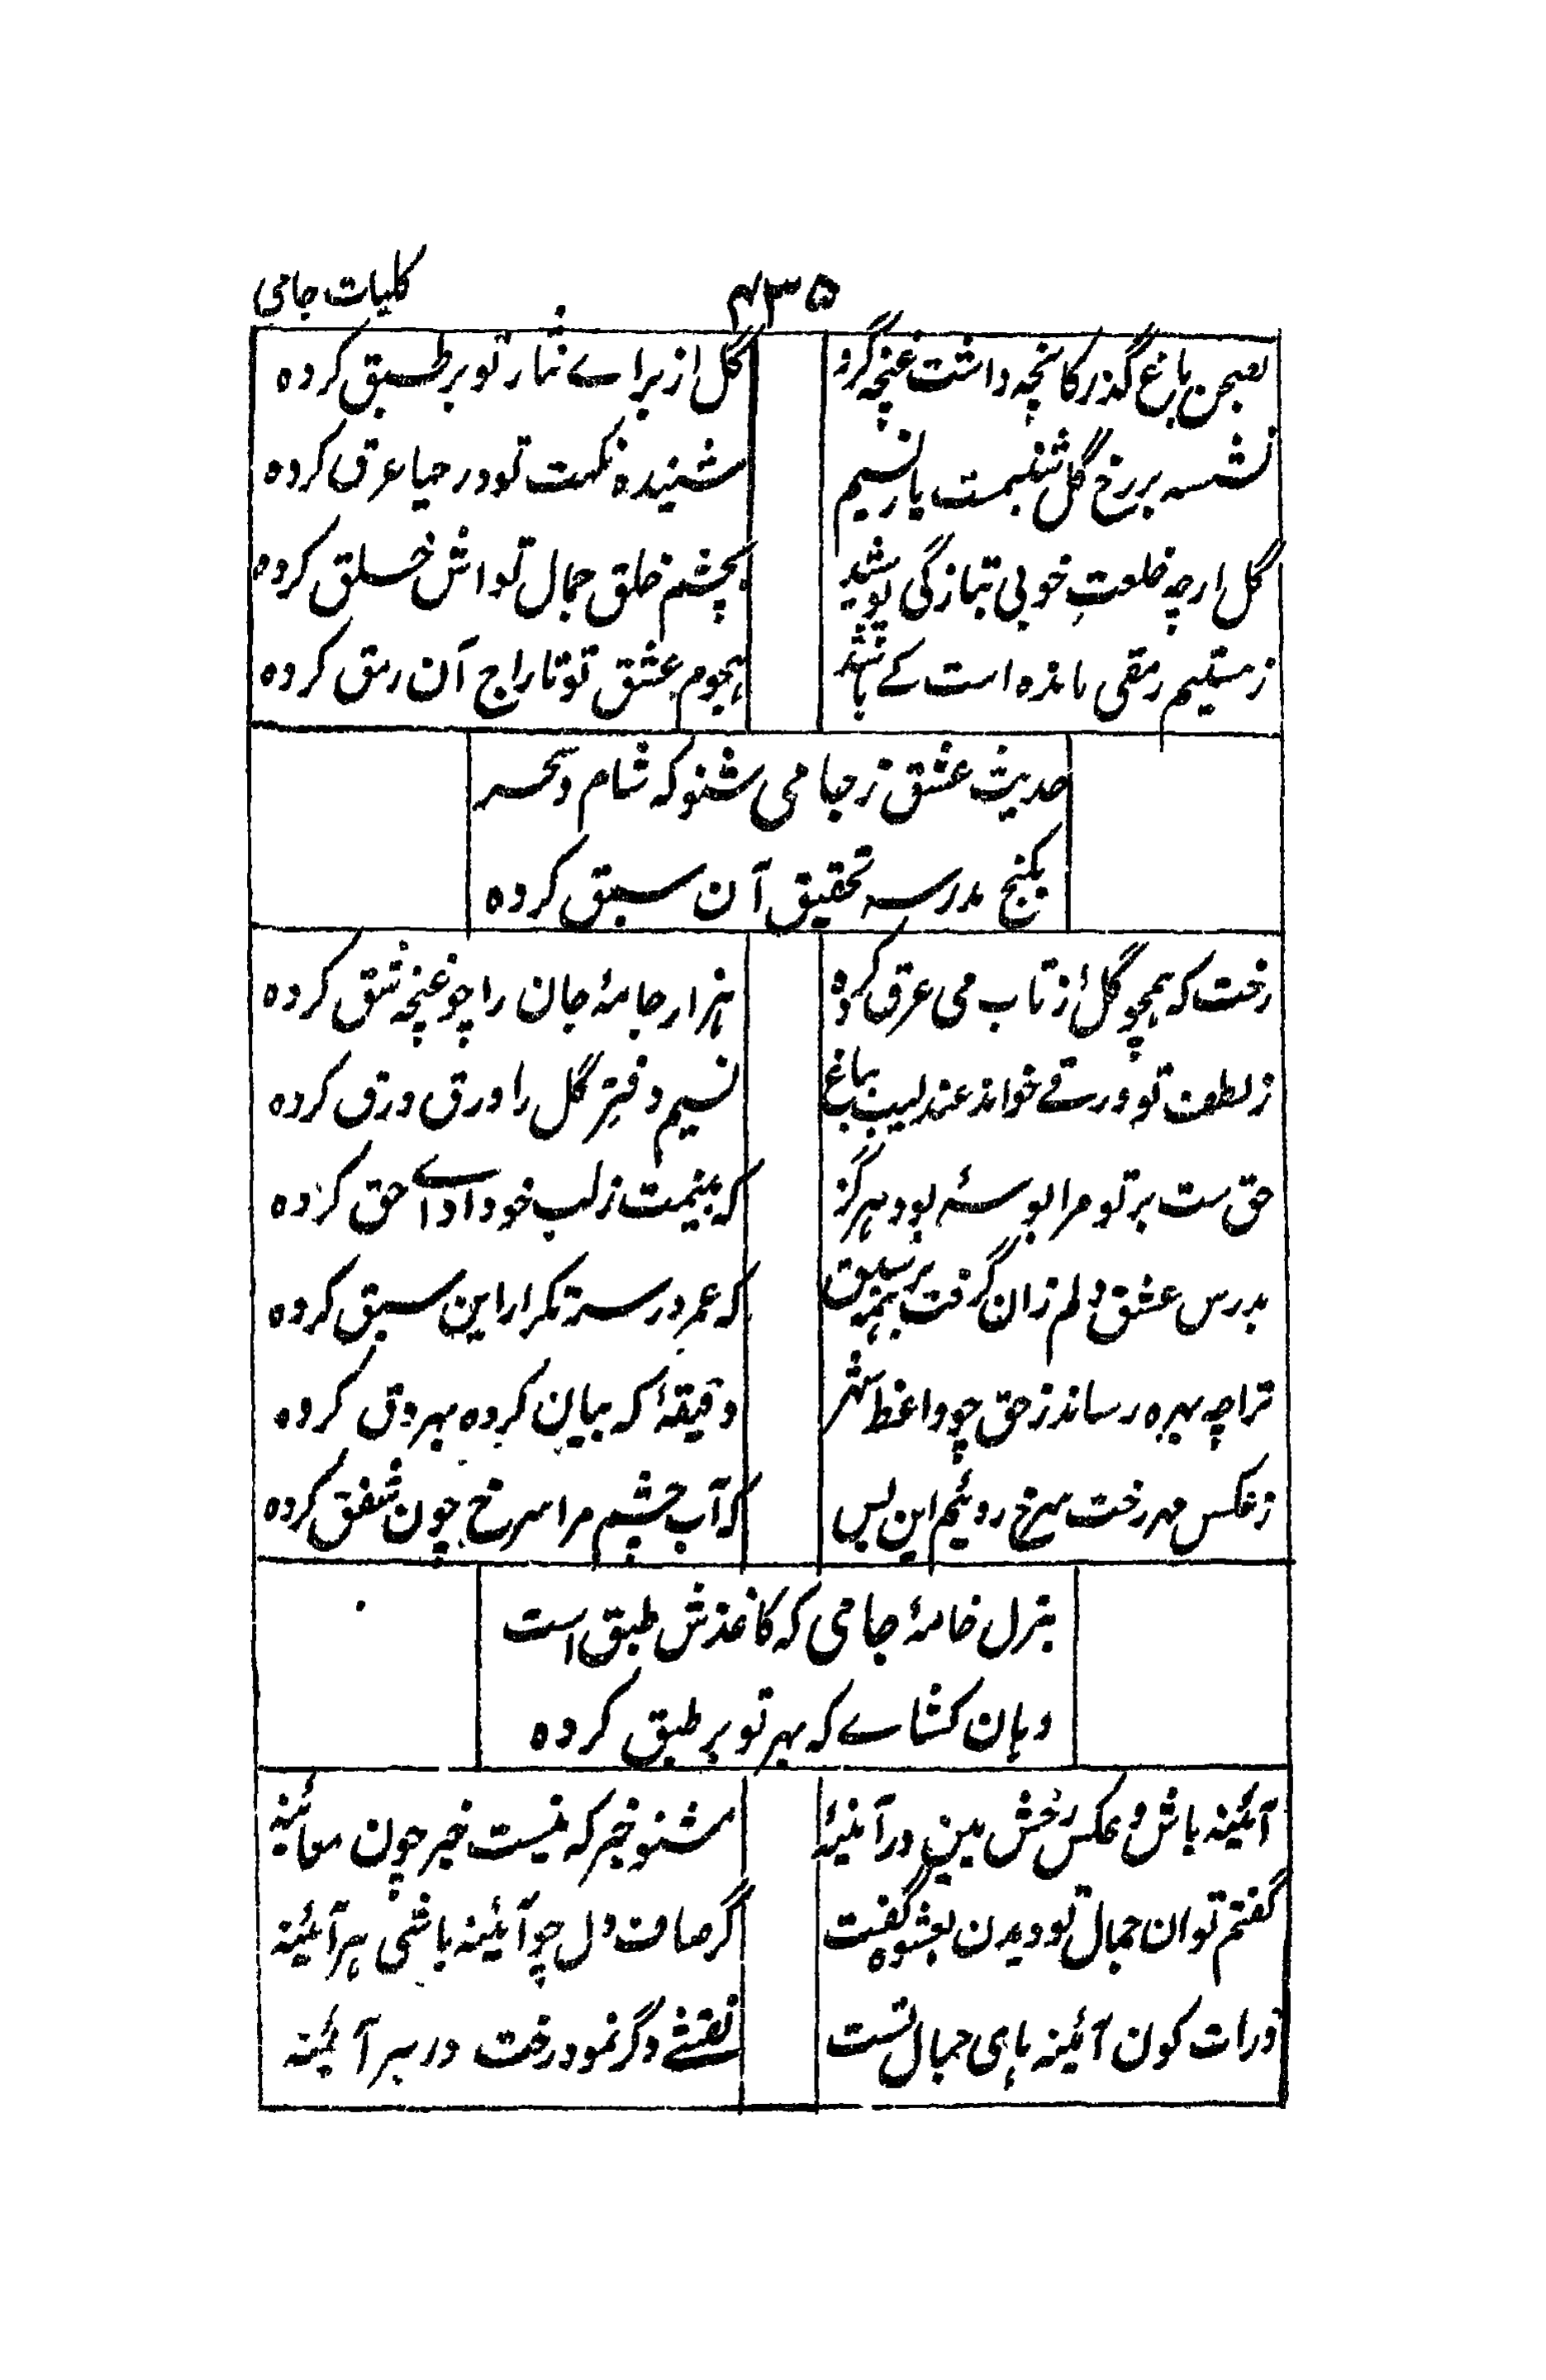 کلیات جامی
۴۳۵
بصحن باغ گذر کانچه داشت غنچه گرو
گل از برای نثار تو بر طبق کرده
نشسه بر رخ گل شبنمست یا ز نسیم
شنیده نکهت تو در حیا عرق کرده
گل ارچه خلعت خوبی بتازگی پوشید
بچشم خلق جمال تو اش خلق کرده
ز مستیم رمقی مانده است کے باشد
هجوم عشق تو تاراج آن رمق کرده
حدیث عشق ز جامی شنو که شام و سحر
بکنج مدرسه تحقیق آن سبق کرده
رخت که همچو گل از تاب می عرق کرده
هزار جامۀ جان را چو غنچه شق کرده
ز لطف تو ورقے خواند عندلیب بباغ
نسیم دفتر گل را ورق ورق کرده
حق ست بر تو مرا بوسۀ بود هرگز
که بینمت ز لب خود اداے حق کرده
بدرس عشق دلم زان گرفت بر همه سبق
که عمر در سر تکرار این سبق کرده
ترا چه بهره رساند ز حق چو واعظ شهر
دقیقۀ که بیان کرده بهر دق کرده
ز عکس مهر رخت سرخ روئیم این بس
که آب چشم مرا سرخ چون شفق کرده
بنزل خامۀ جامی که کاغذش طبق است
دهان کشاے که بهر تو بر طبق کرده
آئینه باش و عکس رخش بین در آئینۀ
مشنو خبر که نیست خبر چون معائنه
گفتم توان جمال تو دیدن بعشوه گفت
گر صاف دل چو آئینه باشی هر آئینه
ذرات کون آئینه های جمال تست
نقشے دگر نمود رخت در هر آئینه